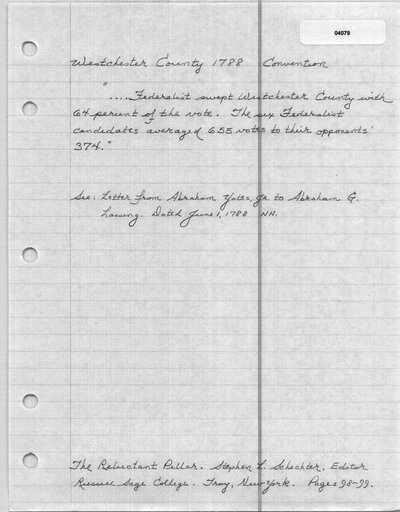 04079
Westchester County 1788 Convention
"....Federalist swept Westchester County with
64 percent of the vote. The six Federalist
candidates averaged 655 votes to their opponents'
374."
See: Letter from Abraham Yates, Jr. to Abraham G.
Lansing. Dated June 1, 1788 NN.
The Reluctant Pillar. Stephen L. Schechter, Editor
Russell Sage College. Troy, New York. Pages 98-99.